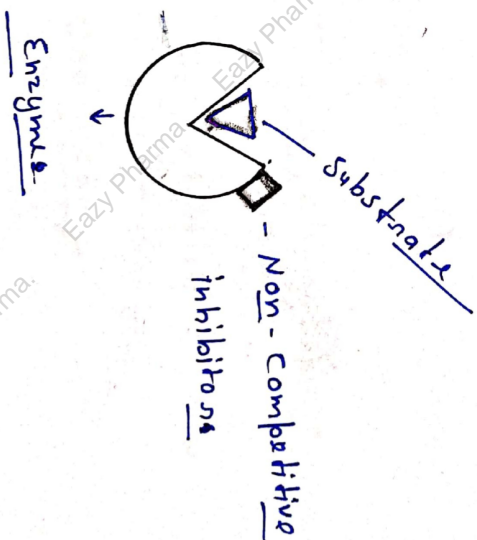 Substrate
- Non-Competitive
inhibitors
Enzyme
Eazy Pharma
Eazy Pharma
ma.